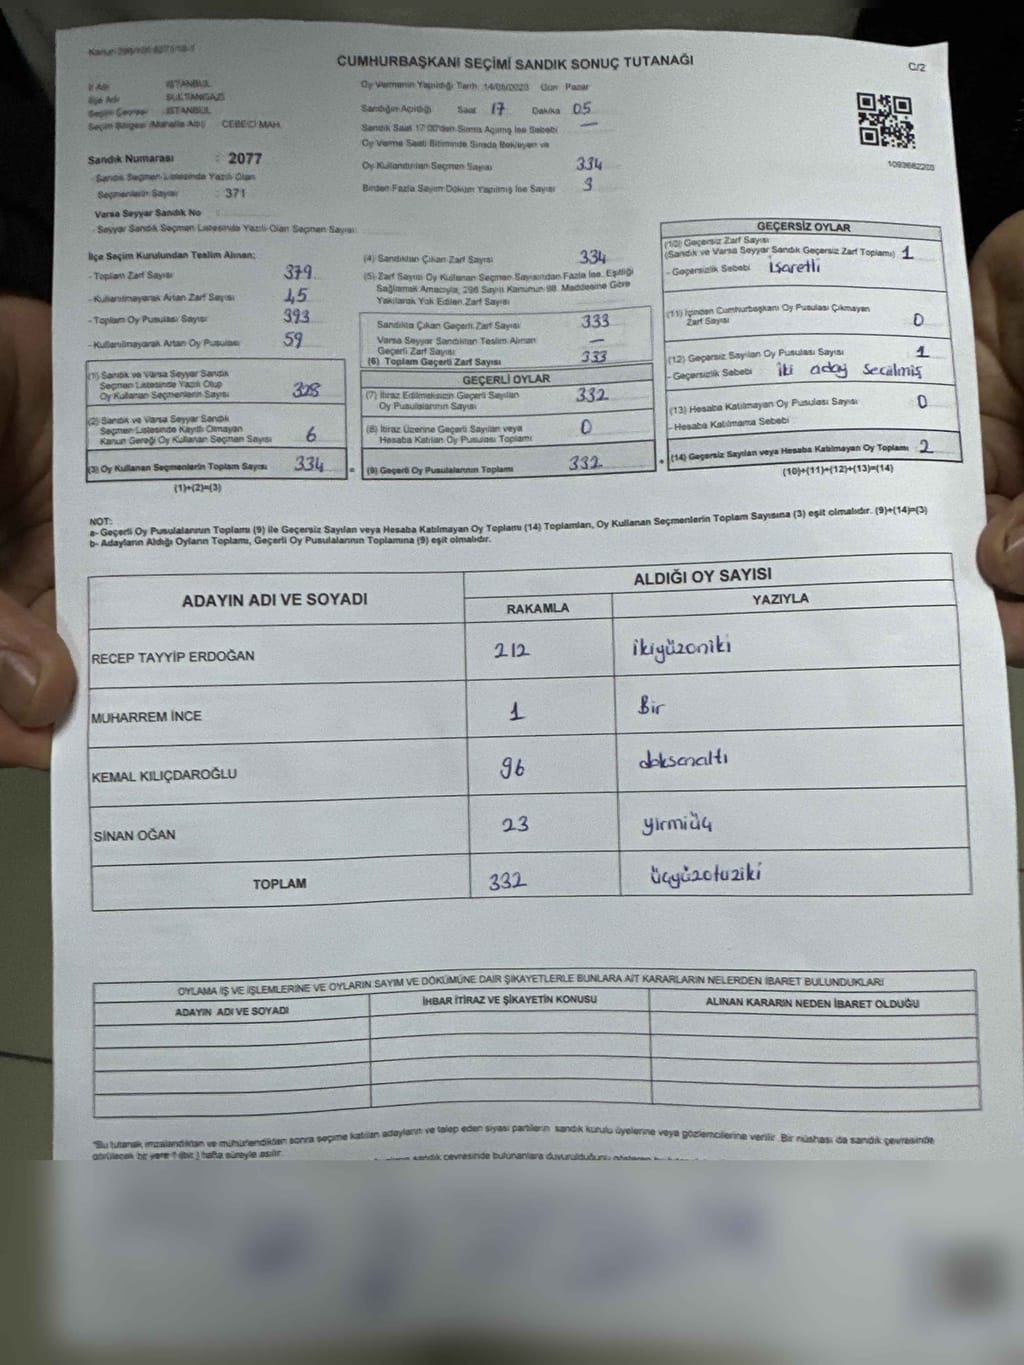 CUMHURBAŞKANI SEÇİMİ SANDIK SONUÇ TUTANAĞI
C/2
İl Adı : İSTANBUL
İlçe Adı : SULTANGAZİ
Seçim Çevresi : İSTANBUL
Seçim Bölgesi (Mahalle Adı) : CEBECİ MAH.
Sandık Numarası : 2077
- Sandık Seçmen Listesinde Yazılı Olan
Seçmenlerin Sayısı : 371
Varsa Seyyar Sandık No :
- Seyyar Sandık Seçmen Listesinde Yazılı Olan Seçmen Sayısı:
Oy Vermenin Yapıldığı Tarih: 14/05/2023 Gün Pazar
Sandığın Açıldığı Saat 17 Dakika 05
Sandık Saat 17:00'den Sonra Açılmış İse Sebebi —
Oy Verme Saati Bitiminde Sırada Bekleyen ve
Oy Kullandırılan Seçmen Sayısı 334
Birden Fazla Sayım Döküm Yapılmış İse Sayısı 3
1093682203
İlçe Seçim Kurulundan Teslim Alınan;
- Toplam Zarf Sayısı 379
- Kullanılmayarak Artan Zarf Sayısı 45
- Toplam Oy Pusulası Sayısı 393
- Kullanılmayarak Artan Oy Pusulası 59
(1) Sandık ve Varsa Seyyar Sandık
Seçmen Listesinde Yazılı Olup
Oy Kullanan Seçmenlerin Sayısı 328
(2) Sandık ve Varsa Seyyar Sandık
Seçmen Listesinde Kayıtlı Olmayan
Kanun Gereği Oy Kullanan Seçmen Sayısı 6
(3) Oy Kullanan Seçmenlerin Toplam Sayısı 334
(1)+(2)=(3)
=
(4) Sandıktan Çıkan Zarf Sayısı 334
(5) Zarf Sayısı Oy Kullanan Seçmen Sayısından Fazla İse, Eşitliği
Sağlamak Amacıyla, 298 Sayılı Kanunun 98. Maddesine Göre
Yakılarak Yok Edilen Zarf Sayısı
Sandıkta Çıkan Geçerli Zarf Sayısı 333
Varsa Seyyar Sandıktan Teslim Alınan
Geçerli Zarf Sayısı —
(6) Toplam Geçerli Zarf Sayısı 333
GEÇERLİ OYLAR
(7) İtiraz Edilmeksizin Geçerli Sayılan
Oy Pusulalarının Sayısı 332
(8) İtiraz Üzerine Geçerli Sayılan veya
Hesaba Katılan Oy Pusulası Toplamı 0
(9) Geçerli Oy Pusulalarının Toplamı 332
+
GEÇERSİZ OYLAR
(10) Geçersiz Zarf Sayısı
(Sandık ve Varsa Seyyar Sandık Geçersiz Zarf Toplamı) 1
- Geçersizlik Sebebi işaretli
(11) İçinden Cumhurbaşkanı Oy Pusulası Çıkmayan
Zarf Sayısı 0
(12) Geçersiz Sayılan Oy Pusulası Sayısı 1
- Geçersizlik Sebebi iki aday seçilmiş
(13) Hesaba Katılmayan Oy Pusulası Sayısı 0
- Hesaba Katılmama Sebebi
(14) Geçersiz Sayılan veya Hesaba Katılmayan Oy Toplamı 2
(10)+(11)+(12)+(13)=(14)
NOT:
a- Geçerli Oy Pusulalarının Toplamı (9) ile Geçersiz Sayılan veya Hesaba Katılmayan Oy Toplamı (14) Toplamları, Oy Kullanan Seçmenlerin Toplam Sayısına (3) eşit olmalıdır. (9)+(14)=(3)
b- Adayların Aldığı Oyların Toplamı, Geçerli Oy Pusulalarının Toplamına (9) eşit olmalıdır.
ADAYIN ADI VE SOYADI
ALDIĞI OY SAYISI
RAKAMLA YAZIYLA
RECEP TAYYİP ERDOĞAN 212 ikiyüzoniki
MUHARREM İNCE 1 Bir
KEMAL KILIÇDAROĞLU 96 doksanaltı
SİNAN OĞAN 23 yirmiüç
TOPLAM 332 üçyüzotuziki
OYLAMA İŞ VE İŞLEMLERİNE VE OYLARIN SAYIM VE DÖKÜMÜNE DAİR ŞİKAYETLERLE BUNLARA AİT KARARLARIN NELERDEN İBARET BULUNDUKLARI
ADAYIN ADI VE SOYADI İHBAR İTİRAZ VE ŞİKAYETİN KONUSU ALINAN KARARIN NEDEN İBARET OLDUĞU
"Bu tutanak imzalandıktan ve mühürlendikten sonra seçime katılan adayların ve talep eden siyasi partilerin sandık kurulu üyelerine veya gözlemcilerine verilir. Bir nüshası da sandık çevresinde
görülecek bir yere 1 (bir) hafta süreyle asılır.
sandık çevresinde bulunanlara duyurulduğunu